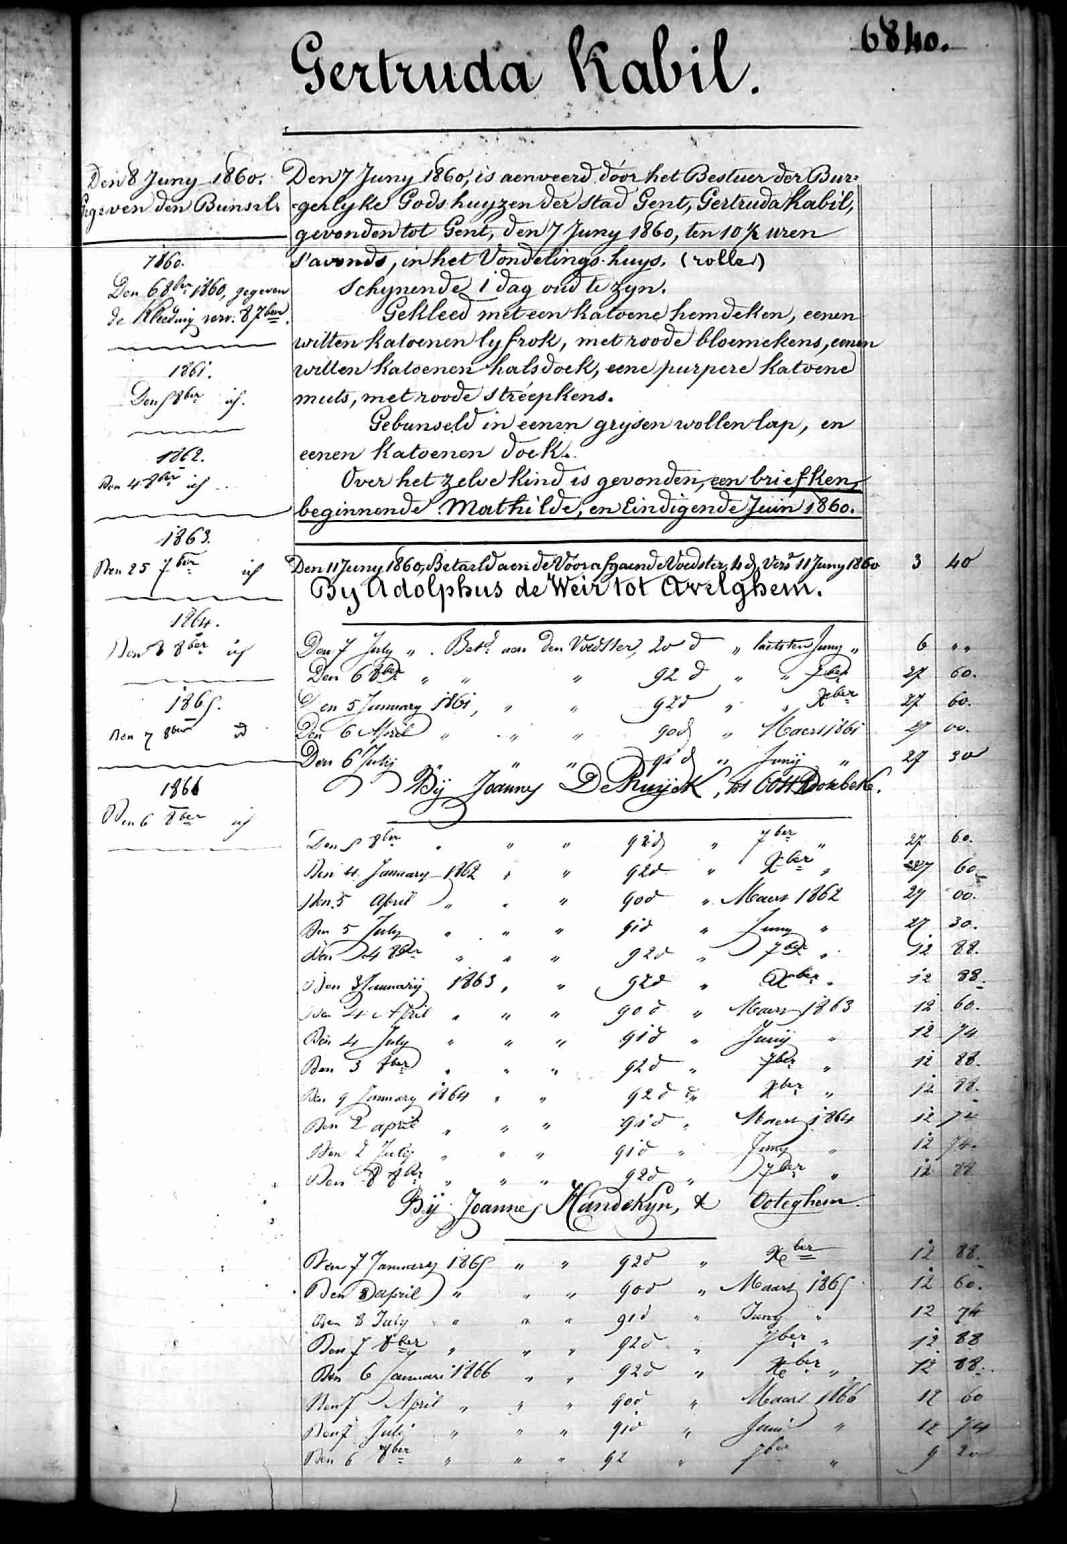 6840.
Gertruda Kabil.
Den 8 Juny 1860.
Gegeven den Bunsel.
1860.
Den 6 8ber 1860, gegeven
de Kleding verv. 87ber.
1861.
Den 5 8ber id.
1862.
Den 4 8ber id
1863.
Den 25 7ber id
1864.
Den 8 8ber id
1865.
Den 7 8ber id
1866
Den 6 8ber id
Den 7 Juny 1860, is aenveerd dóór het Bestuer der Bur=
=gerlyke Godshuyzen der stad Gent, Gertruda Kabil,
gevonden tot Gent, den 7 Juny 1860, ten 10 ½ uren
s'avonds, in het Vondelings-huys. (rolle)
Schynende 1 dag oud te zyn.
Gekleed met een katoene hemdeken, eenen
witten katoenen lyfrok, met roode bloemekens, eenen
witten katoenen halsdoek, eene purpere katoene
muts, met roode stréépkens.
Gebunseld in eenen grysen wollen lap, en
eenen katoenen doek.
Over het zelve kind is gevonden, een briefken,
beginnende Mathilde, en Eindigende Juin 1860.
Den 11 Juny 1860, Betaeld aen de Voorafgaende Voedster, 4 d, Vers 11 Juny 1860 3 40
By Adolphus de Weir tot Avelghem.
Den 7 July " . Betd aen den Voedster, 20 d " laetsten Juny " 6 " "
Den 6 8ber " " " 92 d " " 7ber 27 60.
Den 5 January 1861, " " 92d " " Xber 27 60.
Den 6 April " " " 90d " Maert 1861 27 00.
Den 6 July " " " 91d " Juny " 27 30
By Joannes De Ruyck, tot
Den 5 8ber " " " 92d " 7ber " 27 60.
Den 4 January 1862 " " 92d " Xber " 27 60
Den 5 April " " " 90d " Maert 1862 27 00.
Den 5 July " " " 91d " Juny " 27 30.
Den 4 8ber " " " 92d " 7ber " 12 88.
Den 3 January 1863 " " 92d " Xber " 12 88.
Den 4 April " " " 90d " Maert 1863 12 60.
Den 4 July " " " 91d " Juny " 12 74
Den 3 8ber " " " 92d " 7ber " 12 88
Den 9 January 1864 " " 92d " Xber " 12 88.
Den 2 april " " " 91d " Maert 1864 12 74
Den 2 July " " " 91d " Juny " 12 74.
Den 8 8ber " " " 92d " 7ber " 12 88
By Joannes Handekyn, te Ooteghem.
Den 7 January 1865 " " 92d " Xber 12 88.
Den 8 april " " " 90d " Maert 1865 12 60.
Den 8 July " " " 91d " Juny " 12 74
Den 7 8ber " " " 92d " 7ber " 12 88
Den 6 Januari 1866 " " 92d " Xber " 12 88.
Den 7 April " " " 90d " Maart 1866 12 60
Den 7 Juli " " " 91d " Juni " 12 74
Den 6 8ber " " " 92 " 7ber " 9 20